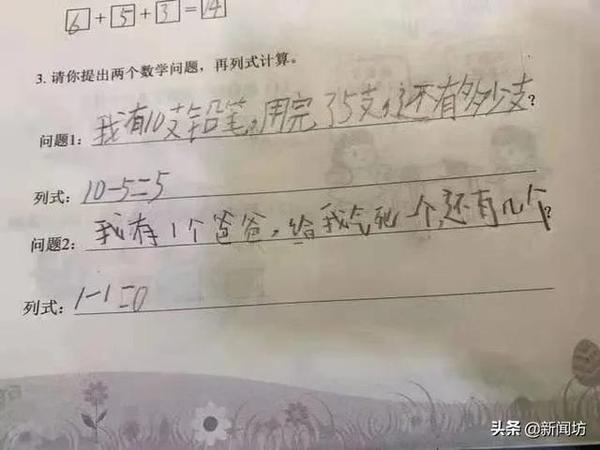 6+5+3=14
3. 请你提出两个数学问题，再列式计算。
问题1：我有10支铅笔，用完了5支，还有多少支？
列式：10-5=5
问题2：我有1个爸爸，给我气死一个，还有几个？
列式：1-1=0
头条 @新闻坊